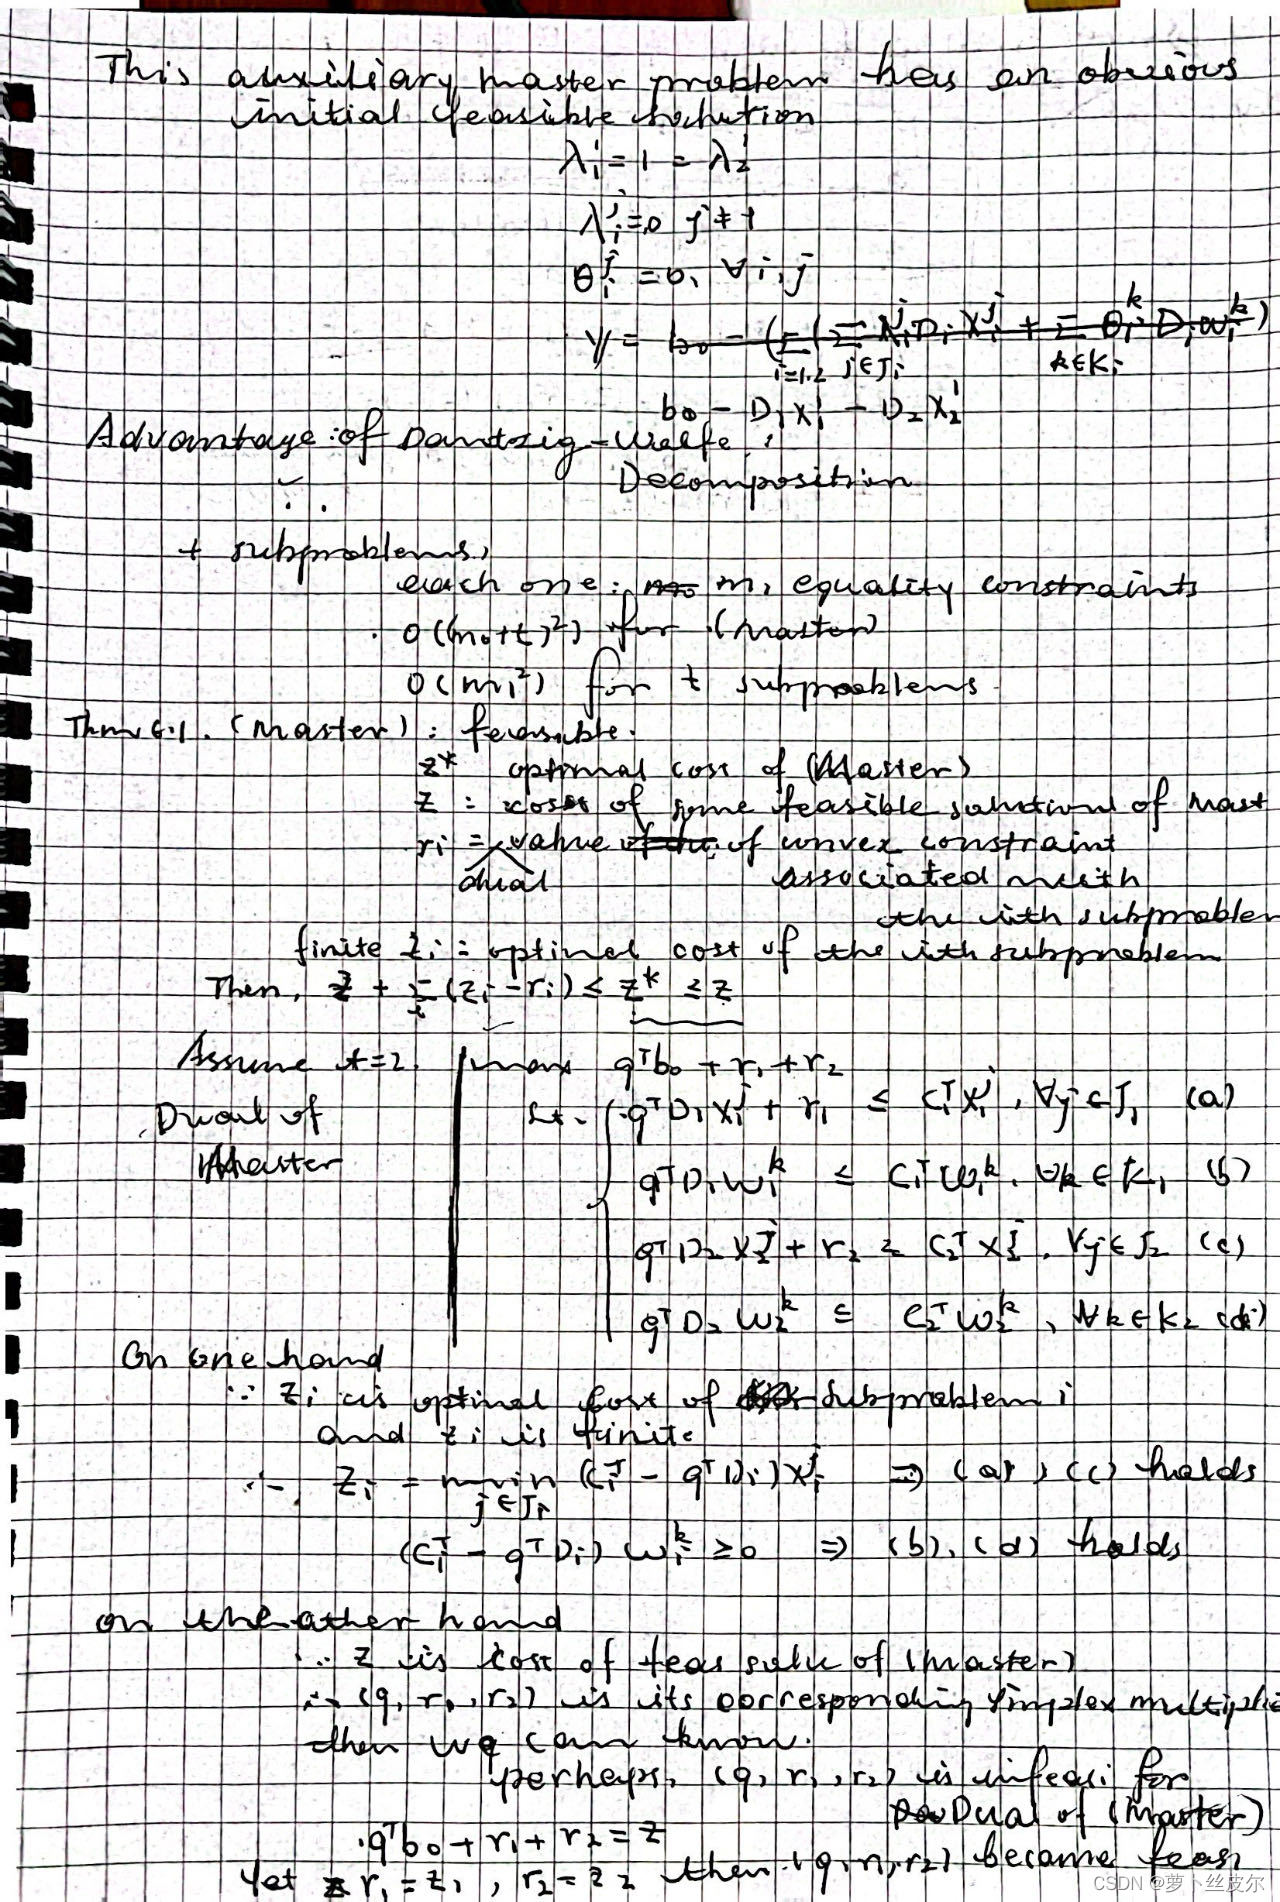 This auxiliary master problem has an obvious
initial feasible solution
λ₁¹ = 1 = λ₂¹
λᵢʲ = 0 j ≠ 1
θᵢʲ = 0, ∀ i, j
y = b₀ - (Σ_{i=1,2} (Σ_{j∈Jᵢ} λᵢʲ Dᵢ Xᵢʲ + Σ_{k∈Kᵢ} θᵢᵏ Dᵢ wᵢᵏ)
b₀ - D₁X₁¹ - D₂X₂¹
Advantage of Dantzig-Wolfe :
Decomposition
t subproblems,
each one: m₁ equality constraints
O((m₀+t)²) for (Master)
O(m₁²) for t subproblems
Thm 6.1. (Master) : feasible.
z* optimal cost of (Master)
z : cost of some feasible solution of Mast
rᵢ = value of convex constraint
dual associated with
the ith subproblem
finite zᵢ = optimal cost of the ith subproblem
Then, z + Σᵢ (zᵢ - rᵢ) ≤ z* ≤ z
Assume t=2. max qᵀb₀ + r₁ + r₂
Dual of s.t. qᵀD₁X₁ʲ + r₁ ≤ C₁ᵀX₁ʲ, ∀j ∈ J₁ (a)
Master qᵀD₁W₁ᵏ ≤ C₁ᵀW₁ᵏ, ∀k ∈ K₁ (b)
qᵀD₂X₂ʲ + r₂ ≤ C₂ᵀX₂ʲ, ∀j ∈ J₂ (c)
qᵀD₂W₂ᵏ ≤ C₂ᵀW₂ᵏ, ∀k ∈ K₂ (d)
On one hand
∵ zᵢ is optimal cost of subproblem i
and zᵢ is finite
∴ zᵢ = min_{j∈Jᵢ} (Cᵢᵀ - qᵀDᵢ)Xᵢʲ ⇒ (a), (c) holds
(Cᵢᵀ - qᵀDᵢ) Wᵢᵏ ≥ 0 ⇒ (b), (d) holds
on the other hand
∵ z is cost of feas solu of (Master)
∴ (q, r₁, r₂) is its corresponding simplex multiplie
then we can know.
perhaps, (q, r₁, r₂) is infeasi for
Dual of (Master)
qᵀb₀ + r₁ + r₂ = z
let r₁ = z₁, r₂ = z₂ then (q, r₁, r₂) became feasi
CSDN @萝卜丝皮尔